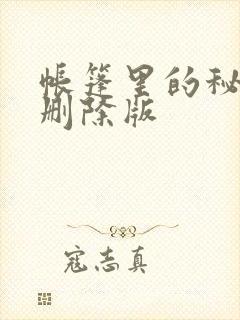 帐篷里的秘
删除版
寇志真